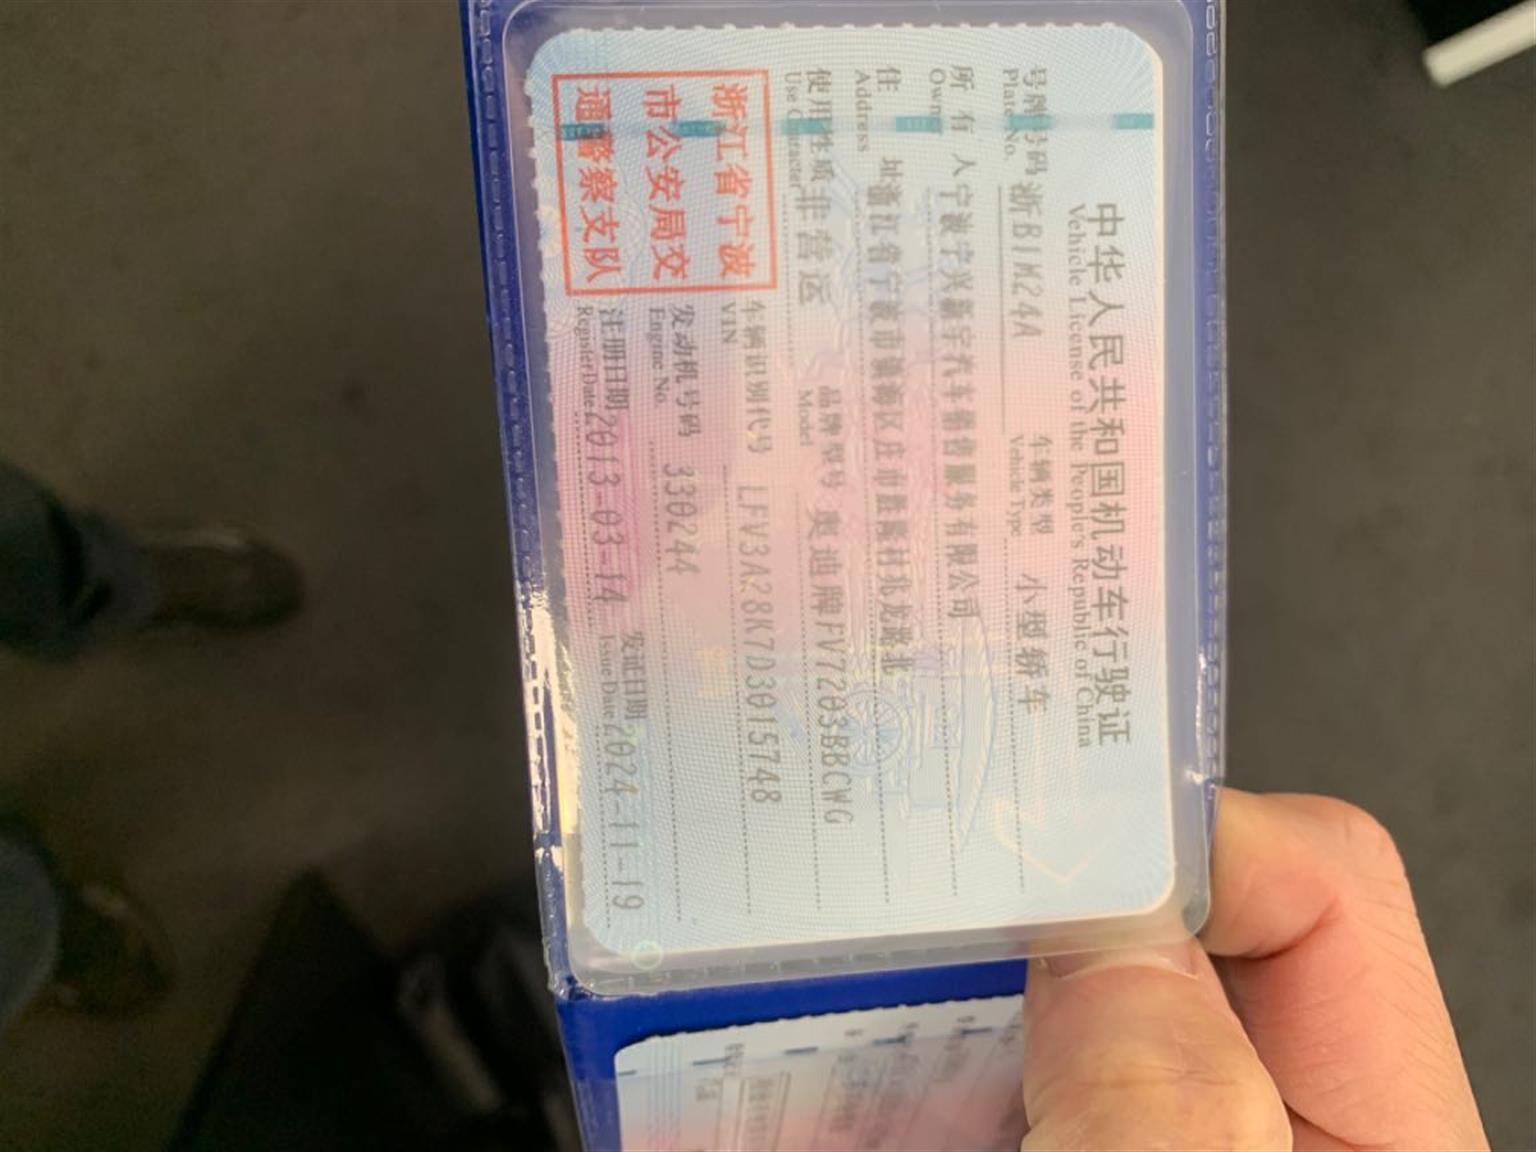 中华人民共和国机动车行驶证
Vehicle License of the People's Republic of China
号牌号码 浙B1M24A 车辆类型 小型轿车
Plate No. Vehicle Type
所有人 宁波宁兴新宇汽车销售服务有限公司
Owner
住址 浙江省宁波市镇海区庄市胜隆村兆龙路北
Address
使用性质 非营运 品牌型号 奥迪牌FV7203BBCWG
Use Character Model
浙江省宁波
市公安局交
通警察支队
车辆识别代号 LFV3A28K7D3015748
VIN
发动机号码 330244
Engine No.
注册日期 2013-03-14 发证日期 2024-11-19
Register Date Issue Date